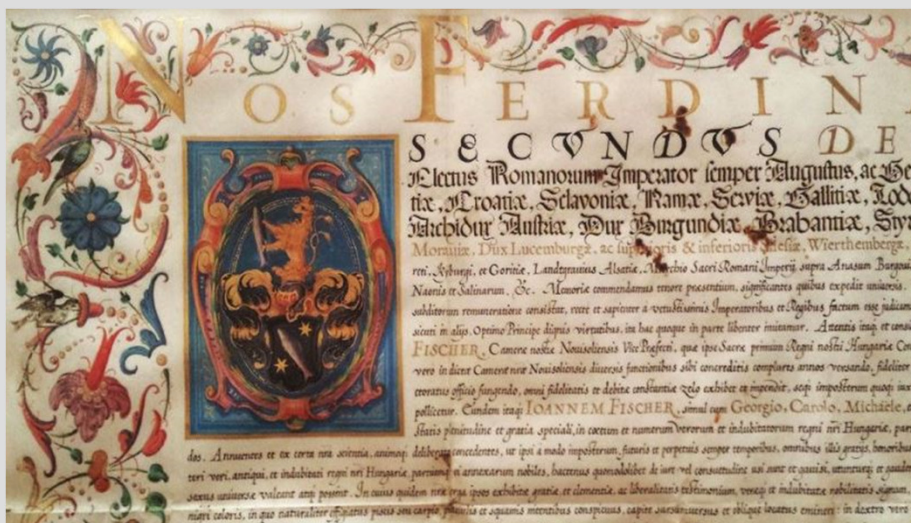 NOS FERDIN
SECVNDVS DE
Electus Romanorum Imperator semper Augustus, ac Ge
tiæ, Croatiæ, Sclavoniæ, Ramæ, Serviæ, Gallitiæ, Lod
Archidux Austriæ, Dux Burgundiæ, Brabantiæ, Syr
Moraviæ, Dux Lucemburgæ, ac superioris & inferioris Silesiæ, Wierthembergæ,
reti, Kyburgi, et Goritiæ, Landgravius Alsatiæ, Marchio Sacri Romani Imperij supra Anasum Burgovi
Naonis et Salinarum, &c. Memoriæ commendamus tenore præsentium, significantes quibus expedit universis.
subditorum remuneratione consistat, recte et sapienter à vetustissimis Imperatoribus et Regibus factum esse judicam
sicuti in alijs Optimo Principe dignis virtutibus, ita hac quoque in parte libenter imitamur. Attentis itaq et cons
FISCHER, Cameræ nostræ Novisoliensis Vice Præfecti, quæ ipse Sacræ primum Regni nostri Hungariæ Cor
vero in dicta Camera nra Novisoliensi diversis functionibus sibi concreditis complures annos versando, fideliter
officio fungendo, omni fidelitatis et debitæ constantiæ zelo exhibet et impendit, seq imposterum quoq
pollicetur. Eundem itaq IOANNEM FISCHER, simul cum Georgio, Carolo, Michaele,
statis plenitudine et gratia speciali, in cœtum et numerum verorum et indubitatorum regni nri Hungariæ, par
dos. Annuentes et ex certa nra scientia, animoq deliberato concedentes, ut ipsi à modo imposterum, futuris et perpetuis semper temporibus, omnibus illis gratijs, honoribus
veri, antiqui, et indubitati regni nri Hungariæ, partiumq ei annexarum nobiles, hactenus quomodolibet de iure vel consuetudine usi sunt et gavisi, utuntur et gaude
sexus universæ valeant atq possint. In cuius quidem nræ erga ipsos exhibitæ gratiæ, et clementiæ, ac liberalitatis testimonium, veræq et indubitatæ nobilitatis signum
nigri coloris, in quo naturaliter effigiatus piscis seu carpio, pinnulis et squamis conspicuus, capite sursum versus et oblique locatus emineri: in dextro vero